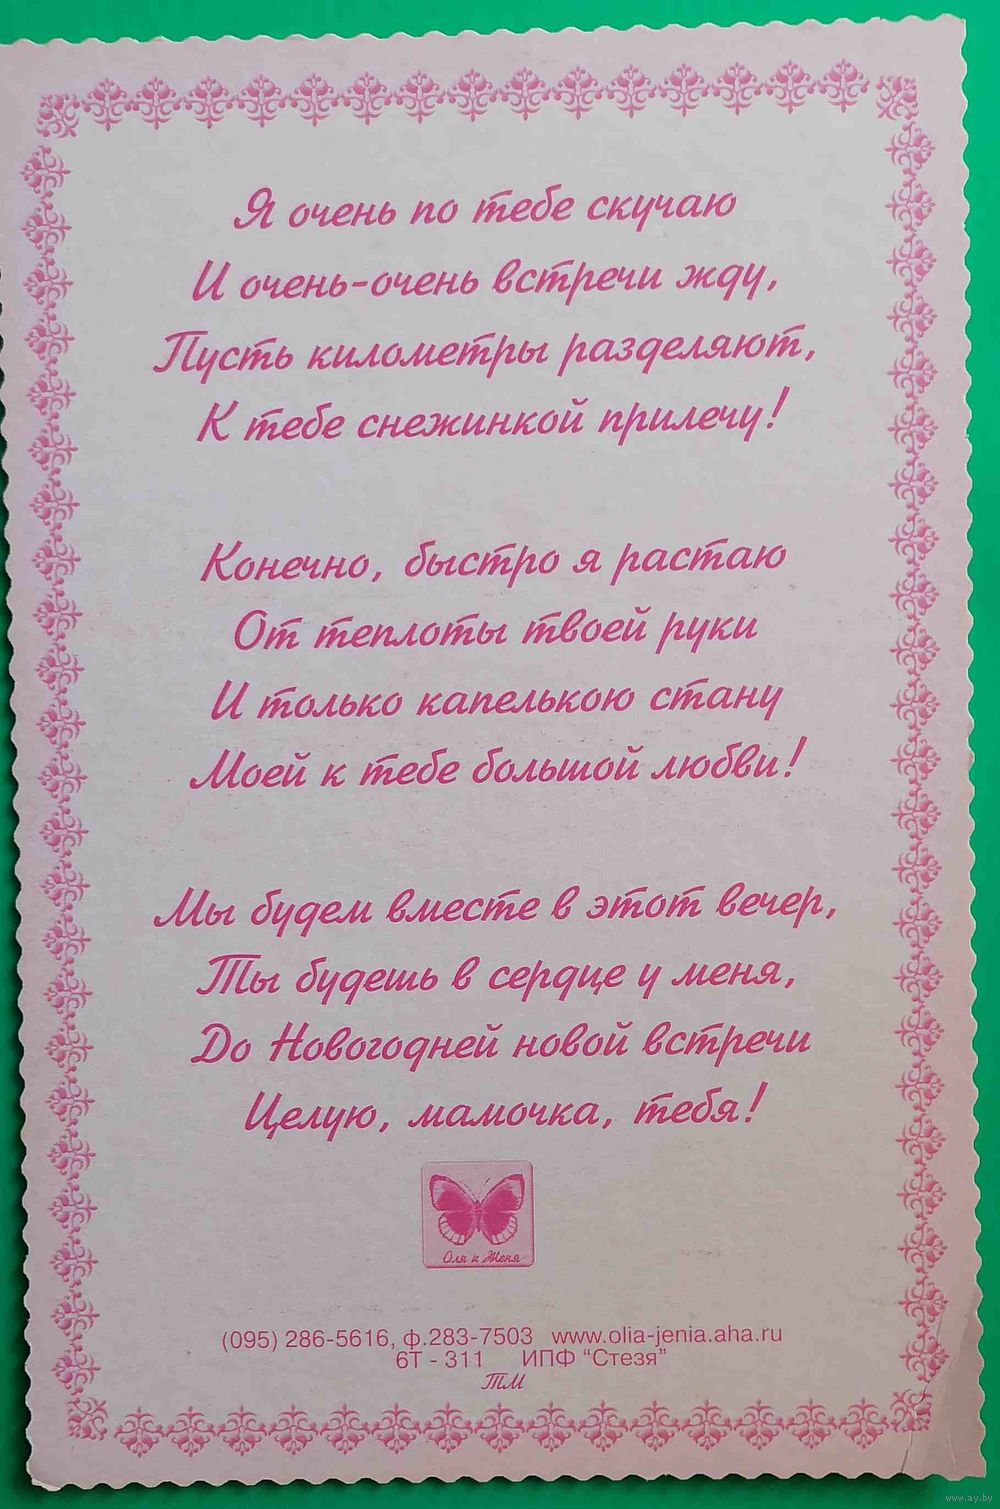 Я очень по тебе скучаю
И очень-очень встречи жду,
Пусть километры разделяют,
К тебе снежинкой прилечу!
Конечно, быстро я растаю
От теплоты твоей руки
И только капелькою стану
Моей к тебе большой любви!
Мы будем вместе в этот вечер,
Ты будешь в сердце у меня,
До Новогодней новой встречи
Целую, мамочка, тебя!
Оля и Женя
(095) 286-5616, ф.283-7503 www.olia-jenia.aha.ru
6Т - 311 ИПФ “Стезя”
ТМ
www.ay.by